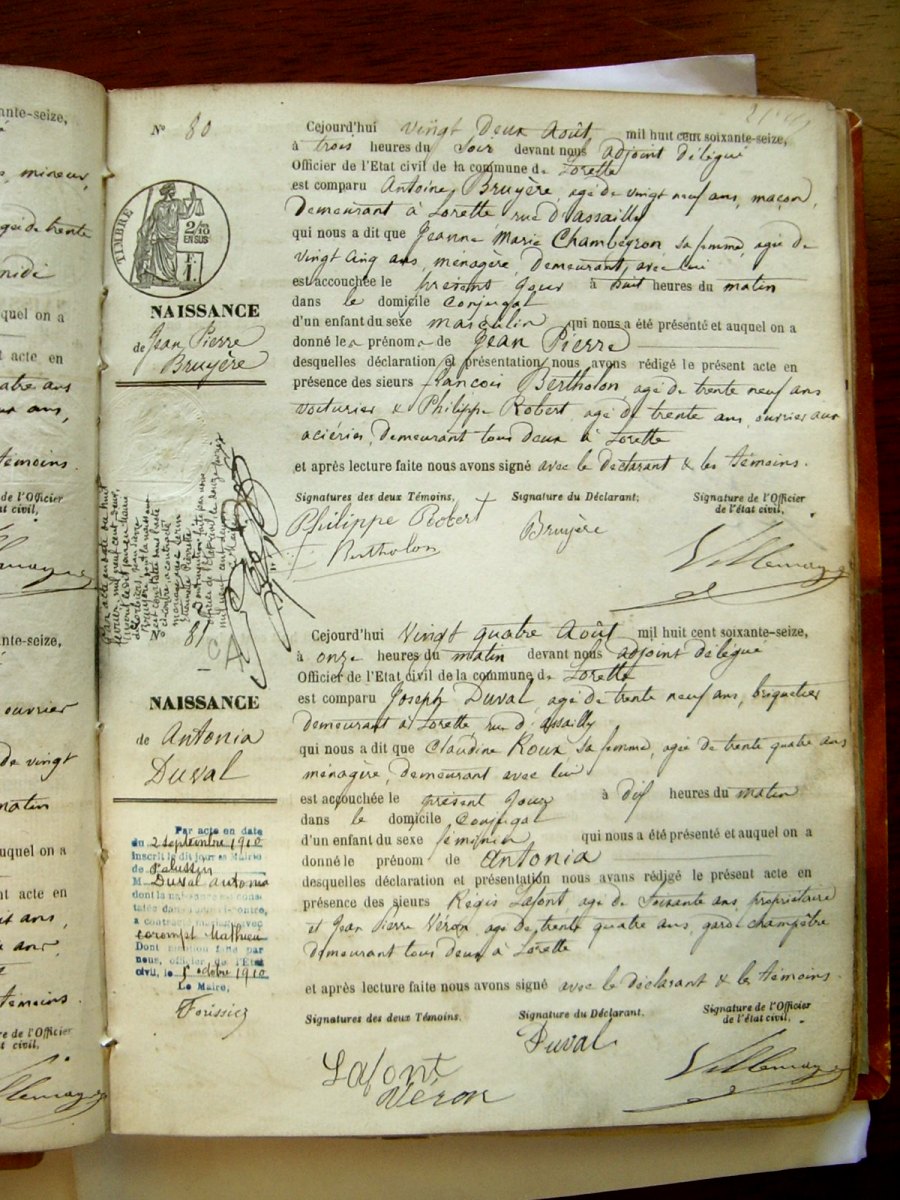 nte-seize,
mineur,
agé de trente
quel on a
t acte en
atre ans
ans,
témoins.
e de l'Officier
t civil,
nte-seize,
ouvrier
de vingt
matin
uquel on a
t acte en
ans,
témoins.
re de l'Officier
at civil,
Nº 80
TIMBRE
2/10
EN SUS
F.
1.
NAISSANCE
de Jean Pierre
Bruyère
Cejourd'hui vingt Deux Août mil huit cent soixante-seize,
à trois heures du soir devant nous adjoint délégué
Officier de l'Etat civil de la commune de Lorette
est comparu Antoine Bruyère, agé de vingt neuf ans, maçon,
Demeurant à Lorette rue D'assailly
qui nous a dit que Jeanne Marie Chambeyron sa femme, agée de
vingt cinq ans, ménagère, Demeurant, avec lui
est accouchée le présent jour à huit heures du matin
dans le domicile conjugal
d'un enfant du sexe masculin qui nous a été présenté et auquel on a
donné les prénoms de Jean Pierre
desquelles déclaration et présentation nous avons rédigé le présent acte en
présence des sieurs francois Bertholon agé de trente neuf ans
voiturier & Philippe Robert, agé de trente ans, ouvrier aux
aciéries, Demeurant tous deux à Lorette
et après lecture faite nous avons signé avec le déclarant & les témoins.
Signatures des deux Témoins. Signature du Déclarant. Signature de l'Officier
de l'état civil.
Philippe Robert Bruyère
Bertholon
Villemagne
81
NAISSANCE
de Antonia
Duval
Par acte en date
du 2 septembre 1910
inscrit le dit jour en Mairie
de Pélussin
M Duval Antonia
dont la naissance est cons-
tatée dans l'acte ci-contre,
a contracté mariage avec
Corompt Mathieu
Dont mention faite par
nous, officier de l'Etat
civil, le 1r octobre 1910
Le Maire,
Cejourd'hui Vingt quatre Août mil huit cent soixante-seize,
à onze heures du matin devant nous adjoint délégué
Officier de l'Etat civil de la commune de Lorette
est comparu Joseph Duval, agé de trente neuf ans, briquetier
demeurant à Lorette, rue d'assailly
qui nous a dit que Claudine Roux sa femme, agée de trente quatre ans
ménagère, demeurant avec lui
est accouchée le présent jour à dix heures du matin
dans le domicile conjugal
d'un enfant du sexe féminin qui nous a été présenté et auquel on a
donné le prénom de Antonia
desquelles déclaration et présentation nous avons rédigé le présent acte en
présence des sieurs Régis Lafont, agé de soixante ans, propriétaire
et Jean Pierre Véron, agé de trente quatre ans, garde champêtre
demeurant tous deux à Lorette
et après lecture faite nous avons signé avec le déclarant & les témoins.
Signatures des deux Témoins. Signature du Déclarant. Signature de l'Officier
de l'état civil.
Duval
Lafont
Véron
Villemagne